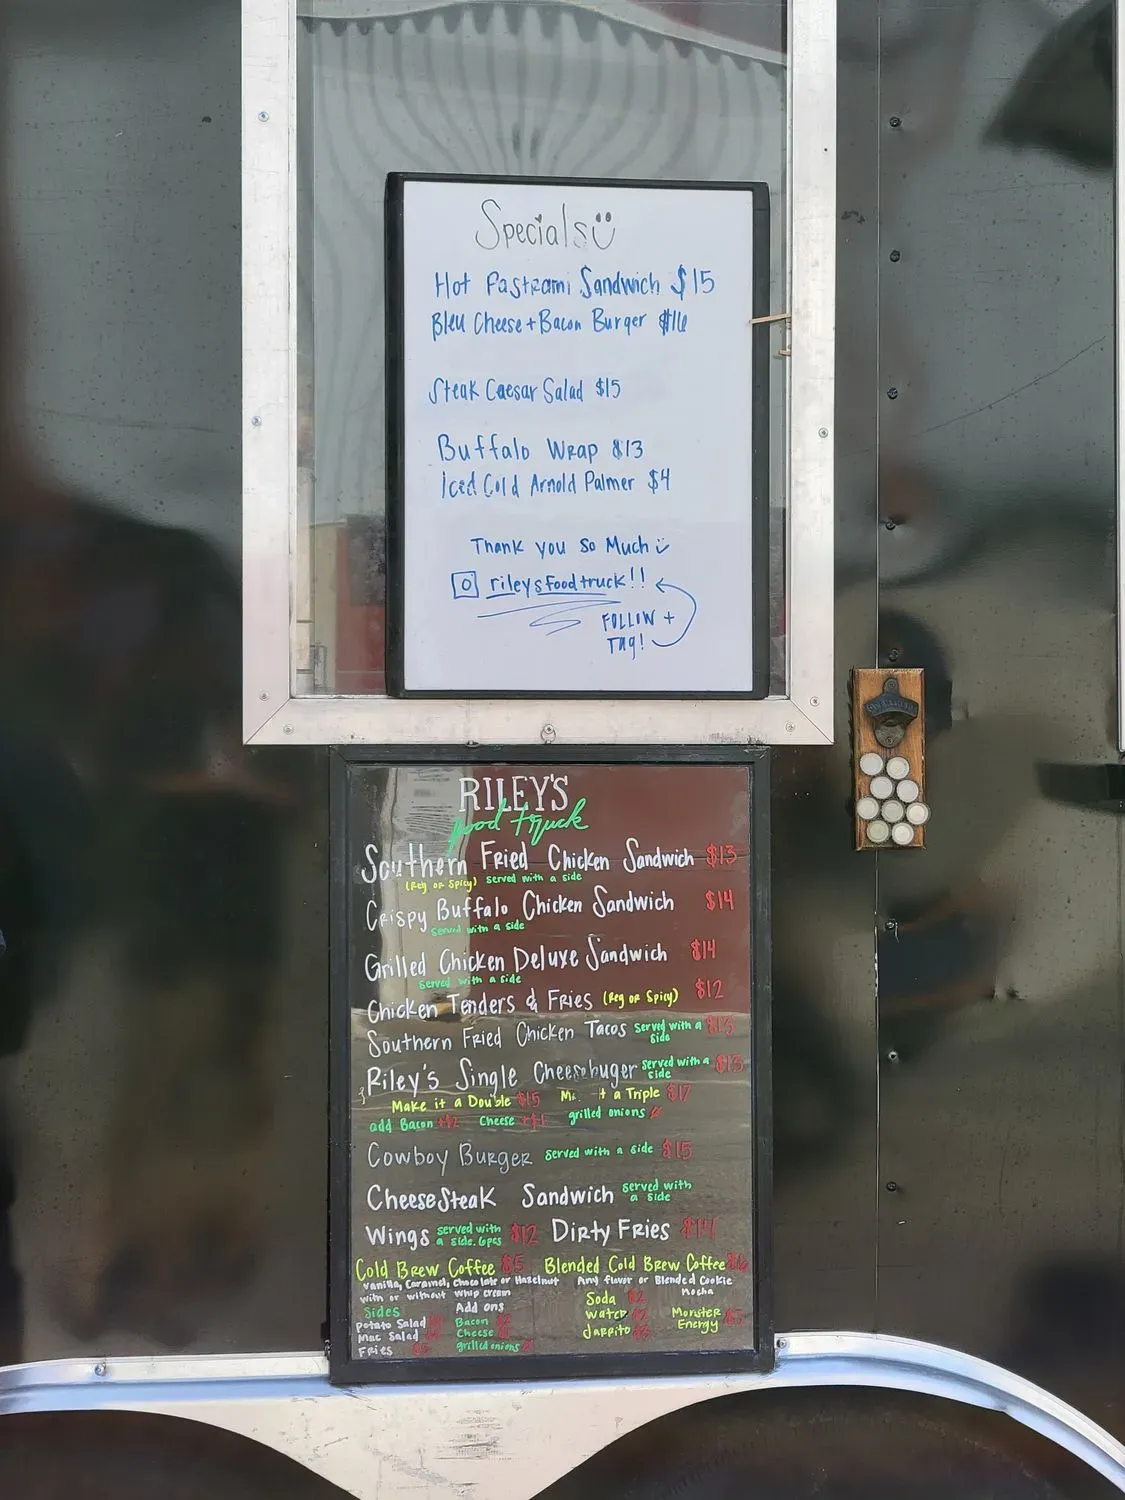 Specials
Hot Pastrami Sandwich $15
Bleu Cheese + Bacon Burger $16
Steak Caesar Salad $15
Buffalo Wrap $13
Iced Cold Arnold Palmer $4
Thank you So Much
rileysfoodtruck!!
FOLLOW +
TAG!
RILEY'S
food truck
Southern Fried Chicken Sandwich $13
(Reg or Spicy) served with a side
Crispy Buffalo Chicken Sandwich $14
served with a side
Grilled Chicken Deluxe Sandwich $14
served with a side
Chicken Tenders & Fries (Reg or Spicy) $12
Southern Fried Chicken Tacos served with a side $13
Riley's Single Cheesebuger served with a side $13
Make it a Double $15 it a Triple $17
add Bacon +$2 Cheese +$1 grilled onions
Cowboy Burger served with a side $15
CheeseSteak Sandwich served with a side
Wings served with a side. 6pcs $12 Dirty Fries $14
Cold Brew Coffee $5 Blended Cold Brew Coffee
Vanilla, Caramel, Chocolate or Hazelnut Any flavor or Blended Cookie
with or without whip cream Mocha
Sides Add ons Soda $2
Potato Salad Bacon Water $2 Monster
Mac Salad Cheese Jarrito Energy
Fries grilled onions